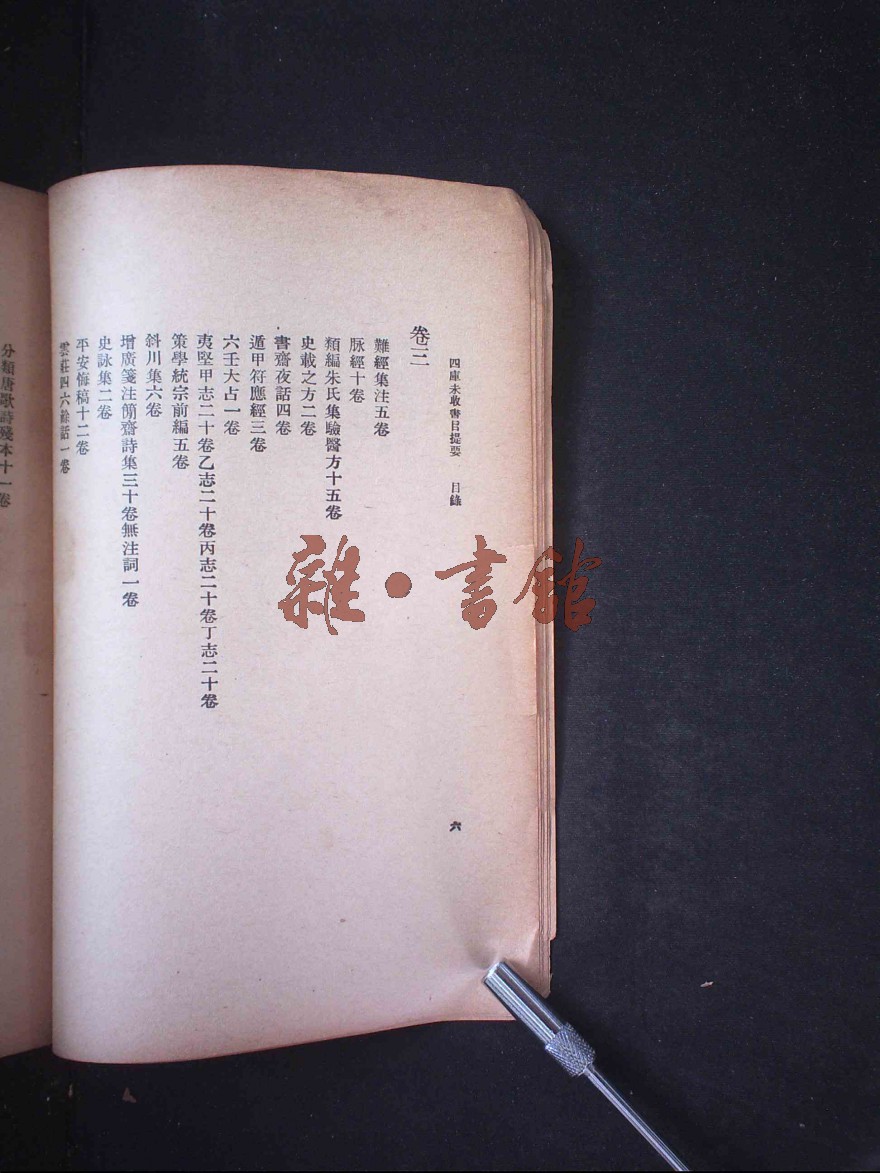 四庫未收書目提要 目錄
六
卷三
難經集注五卷
脉經十卷
類編朱氏集驗醫方十五卷
史載之方二卷
書齋夜話四卷
遁甲符應經三卷
六壬大占一卷
夷堅甲志二十卷乙志二十卷丙志二十卷丁志二十卷
策學統宗前編五卷
斜川集六卷
增廣箋注簡齋詩集三十卷無注詞一卷
史詠集二卷
平安悔稿十二卷
雲莊四六餘話一卷
分類唐歌詩殘本十一卷
雜·書館